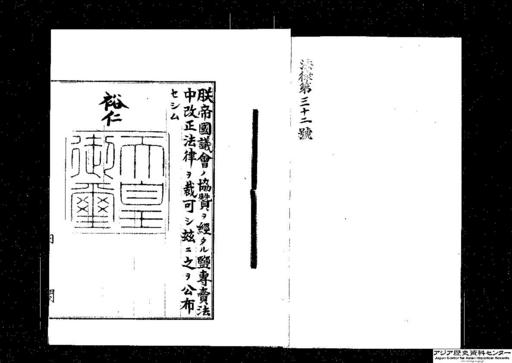 法律第三十二號
朕帝國議會ノ協贊ヲ經タル鹽專賣法
中改正法律ヲ裁可シ茲ニ之ヲ公布
セシム
裕仁
天皇
御璽
アジア歴史資料センター
Japan Center for Asian Historical Records